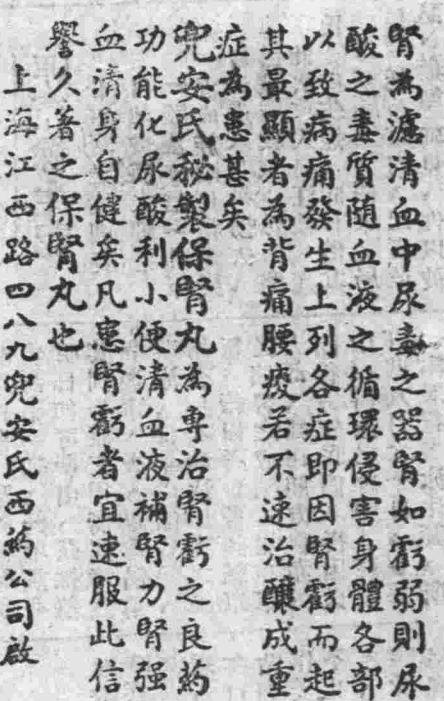 腎為濾清血中尿毒之器腎如虧弱則尿
酸之毒質随血液之循環侵害身體各部
以致病痛發生上列各症即因腎虧而起
其最顯者為背痛腰痠若不速治釀成重
症為患甚矣
兜安氏秘製保腎丸為専治腎虧之良葯
功能化尿酸利小便清血液補腎力腎强
血清身自健矣凡患腎虧者宜速服此信
譽久著之保腎丸也
上海江西路四八九兜安氏西葯公司啟